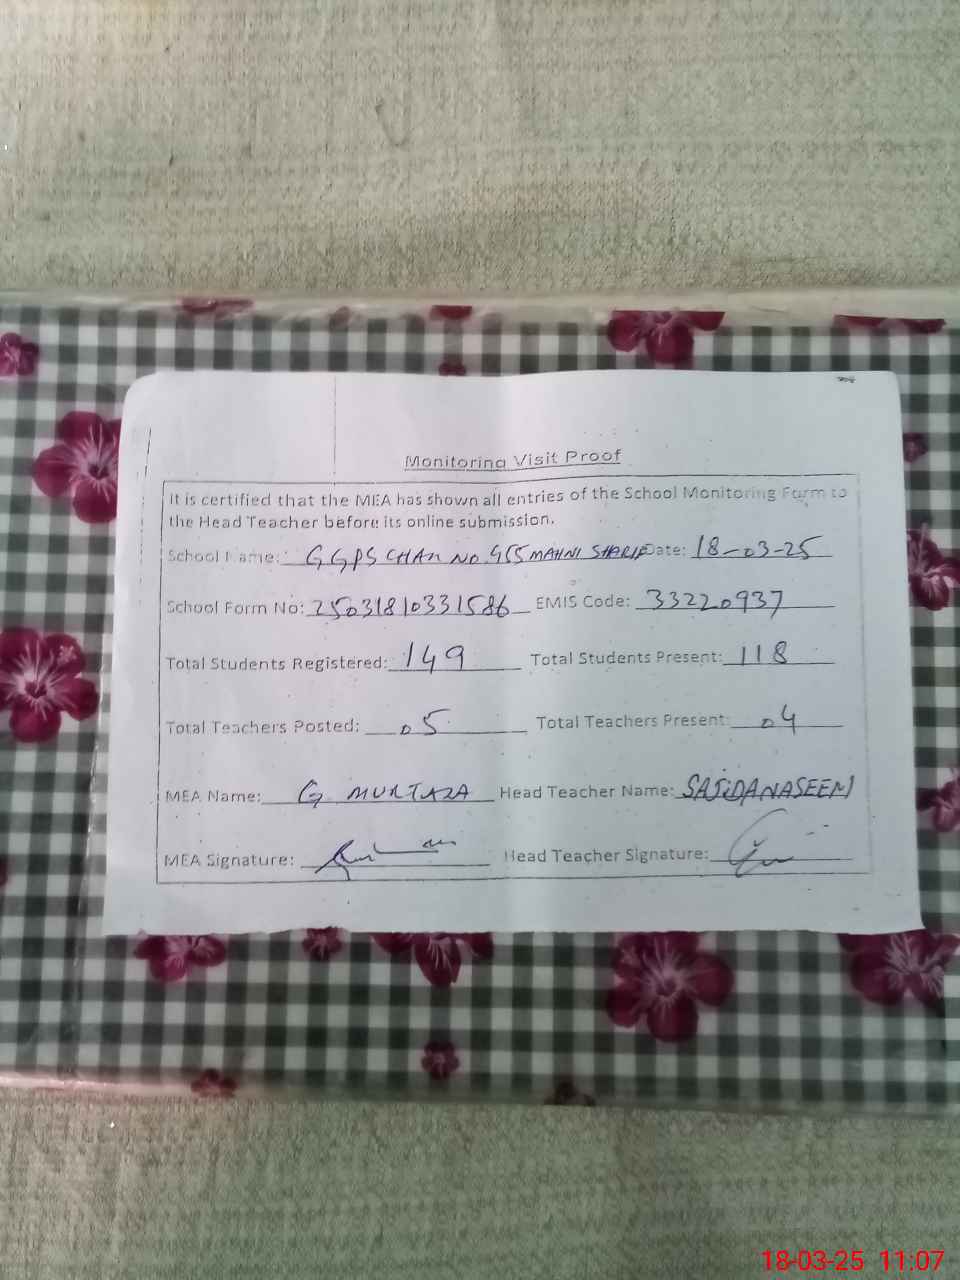 Monitoring Visit Proof
It is certified that the MEA has shown all entries of the School Monitoring Form to
the Head Teacher before its online submission.
School Name: GGPS CHAK NO. 455 MAHNI SHARIF Date: 18-03-25
School Form No: 25031810331586 EMIS Code: 33220937
Total Students Registered: 149 Total Students Present: 118
Total Teachers Posted: 05 Total Teachers Present: 04
MEA Name: G MURTAZA Head Teacher Name: SAJIDA NASEEM
MEA Signature: Head Teacher Signature:
18-03-25 11:07